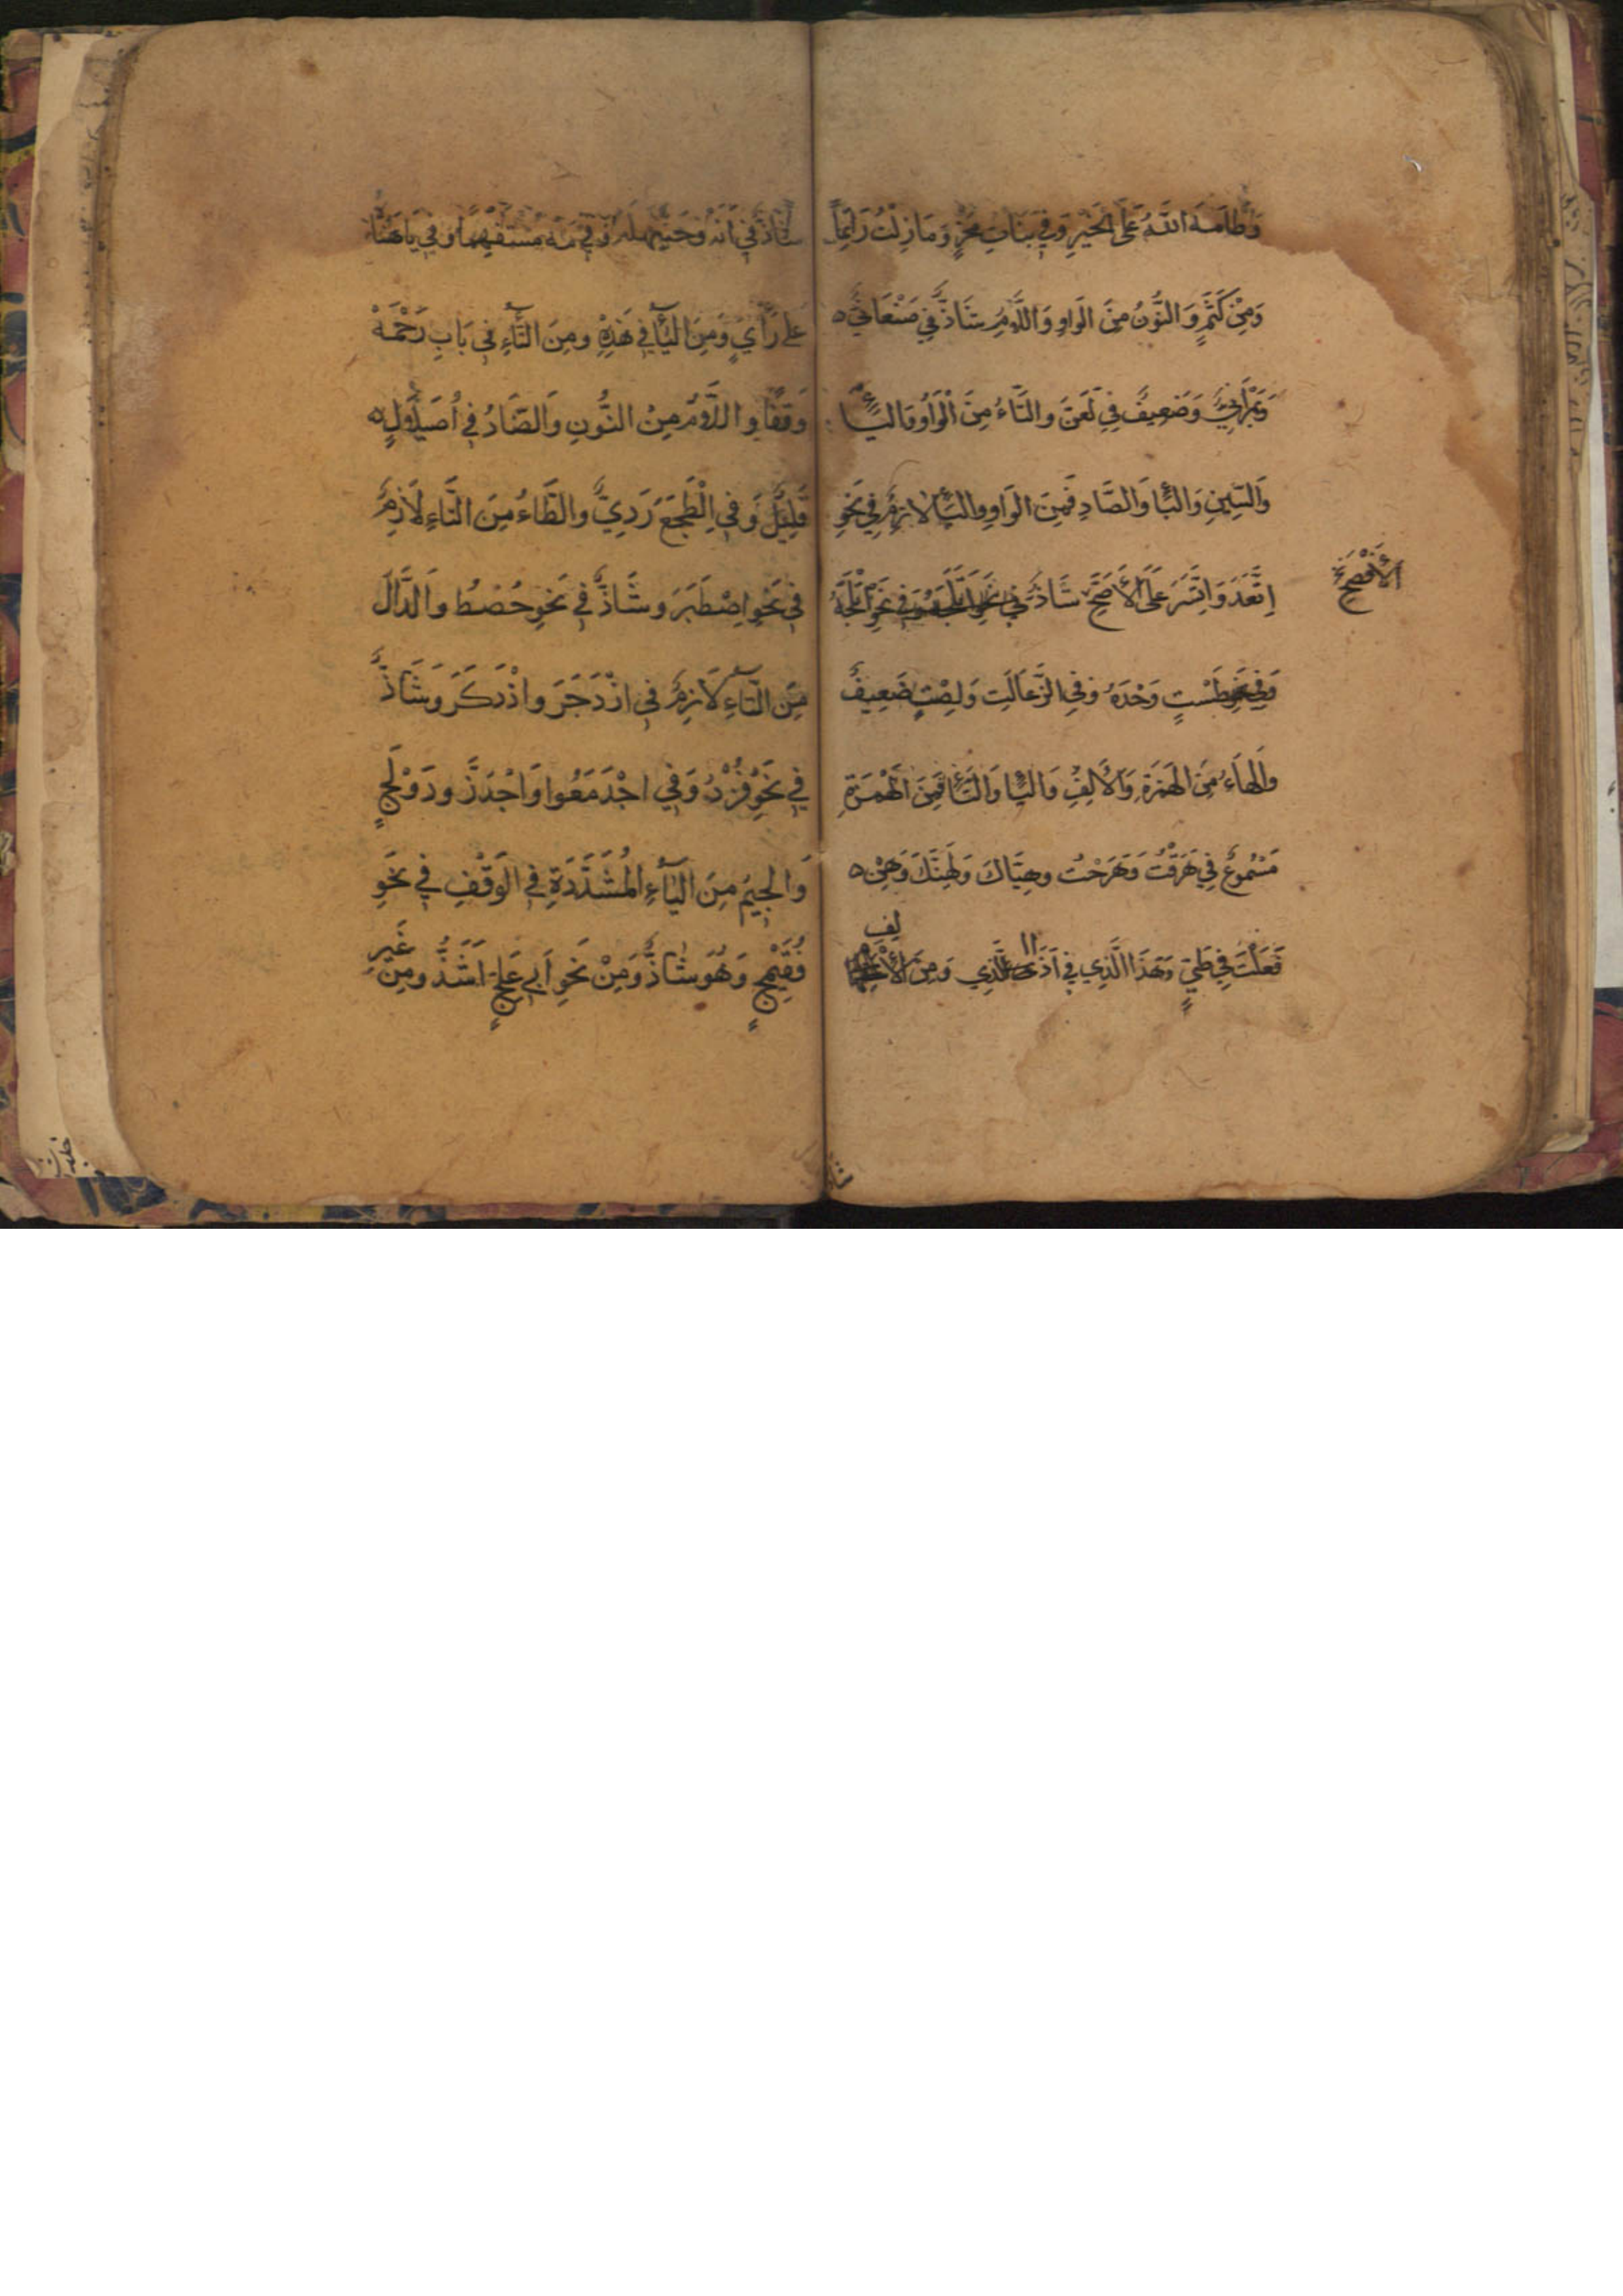 وَطَامَهُ اللّٰهُ عَلَى الْخَيْرِ وَفِي بَنَاتِ مَخْرٍ وَمَا زِلْتُ رَاتِمًا
وَمِنْ كَثَمٍ وَالنُّونُ مِنَ الْوَاوِ وَاللَّامِ شَاذٌّ فِي صَنْعَانِيٍّ
وَبَهْرَانِيٍّ وَضَعِيفٌ فِي لَعَنَّ وَالتَّاءُ مِنَ الْوَاوِ وَاليَاءِ
وَالسِّينِ وَالبَاءِ وَالصَّادِ فَمِنَ الْوَاوِ وَالْيَاءِ لَازِمٌ فِي نَحْوِ
اِتَّعَدَ وَاتَّسَرَ عَلَى الْأَصَحِّ شَاذٌّ فِي نَحْوِ أَتْلَجَهُ
الأَفْصَحِ
وَفِي طَسْتٍ وَحْدَهُ وَفِي الذَّعَالَتِ وَلِصْتٍ ضَعِيفٌ
وَالْهَاءُ مِنَ الْهَمْزَةِ وَالْأَلِفِ وَالْيَاءِ وَالتَّاءِ فَمِنَ الْهَمْزَةِ
مَسْمُوعٌ فِي هَرَقْتُ وَهَرَحْتُ وَهِيَّاكَ وَلَهِنَّكَ وَهِنْ
فَعَلْتَ فِي طَيٍّ وَهَذَا الَّذِي فِي أَذَا الَّذِي وَمِنَ الْأَلِفِ
شَاذٌّ فِي أَنَهْ وَحَيَّهَلَهْ وَفِي مَهْ مُسْتَفْهِمًا وَفِي يَا هَنَاهُ
عَلَى رَأْيٍ وَمِنَ الْيَاءِ فِي هَذِهِ وَمِنَ التَّاءِ فِي بَابِ رَحْمَهْ
وَقْفًا وَاللَّامُ مِنَ النُّونِ وَالضَّادُ فِي أُصَيْلَالٍ
قَلِيلٌ وَفِي الْطَجَعَ رَدِيٌّ وَالطَّاءُ مِنَ التَّاءِ لَازِمٌ
فِي نَحْوِ اصْطَبَرَ وَشَاذٌّ فِي نَحْوِ حُصْطُ وَالدَّالُ
مِنَ التَّاءِ لَازِمٌ فِي ازْدَجَرَ وَاذْدَكَرَ وَشَاذٌّ
فِي نَحْوِ فُزْدُ وَفِي اجْدَمَعُوا وَاجْدَزَّ وَدَوْلَجٍ
وَالْجِيمُ مِنَ الْيَاءِ الْمُشَدَّدَةِ فِي الْوَقْفِ فِي نَحْوِ
فُقَيْمِجٍّ وَهُوَ شَاذٌّ وَمِنْ نَحْوِ أَبِي عَلِجٍّ أَشَذُّ وَمِنْ غَيْرِ